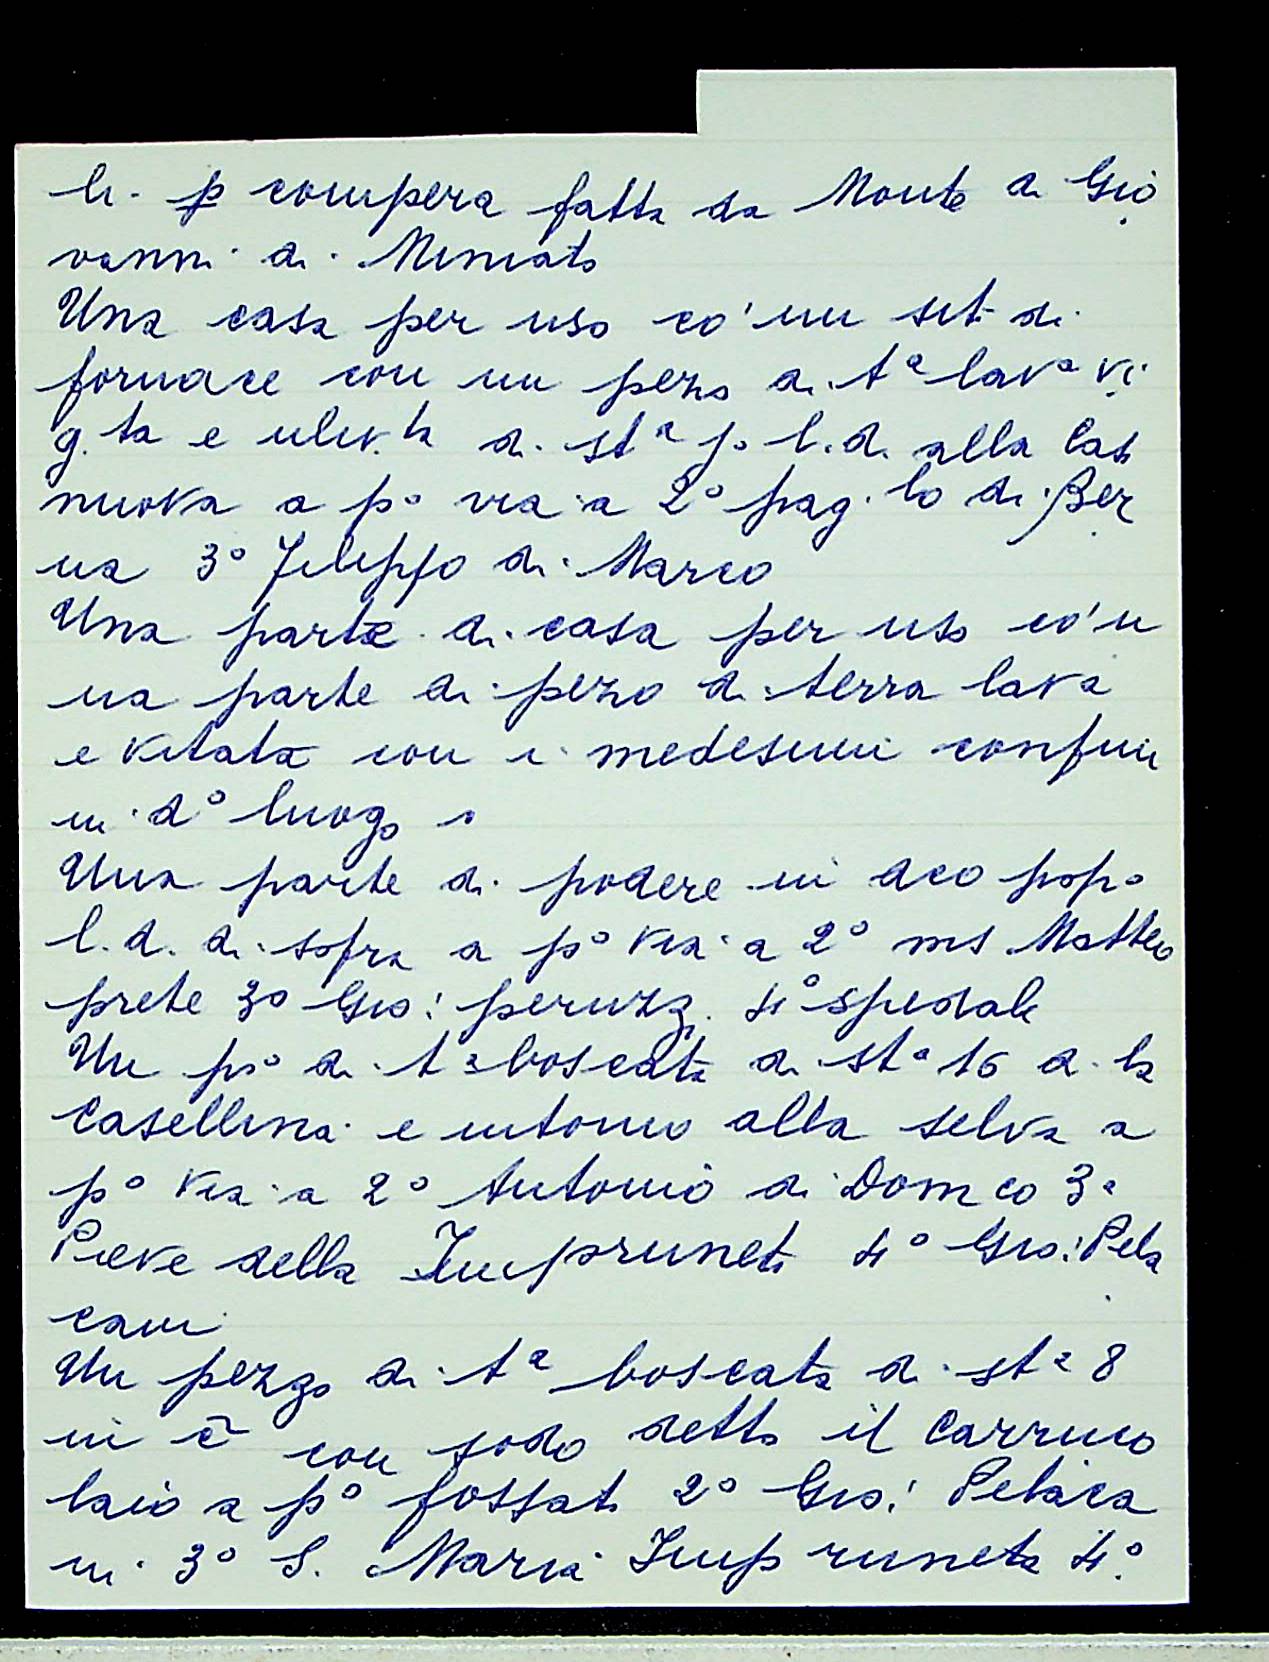 li. p compera fatta da Monte di Gio
vanni di Miniato
Una casa per uso co'un sit di
fornace con un pezo di tª lavª vi
g.ta e uliv.ta di stª p. l.d. alla Cas
nuova a pº via a 2º pag.lo di Ber
na 3º Filippo di Marco
Una parte di casa per uso co'u
na parte di pezo di terra lava
e vitata con i medesimi confini
in dº luogo
Una parte di podere in dco popº
l.d. di sopra a pº via a 2º ms Matteo
prete 3º Gio: peruzzi 4º spedale
Un pº di tª boscata di stª 16 d. la
Casellina e intorno alla selva a
pº via a 2º Antonio di Domco 3ª
Pieve della Impruneta 4º Gio: Pela
cani
Un pezzo di tª boscata di stª 8
in c̃ con sodo detto il Carruco
laio a pº fossato 2º Gio: Pelaca
ni 3º S. Maria Impruneta 4º